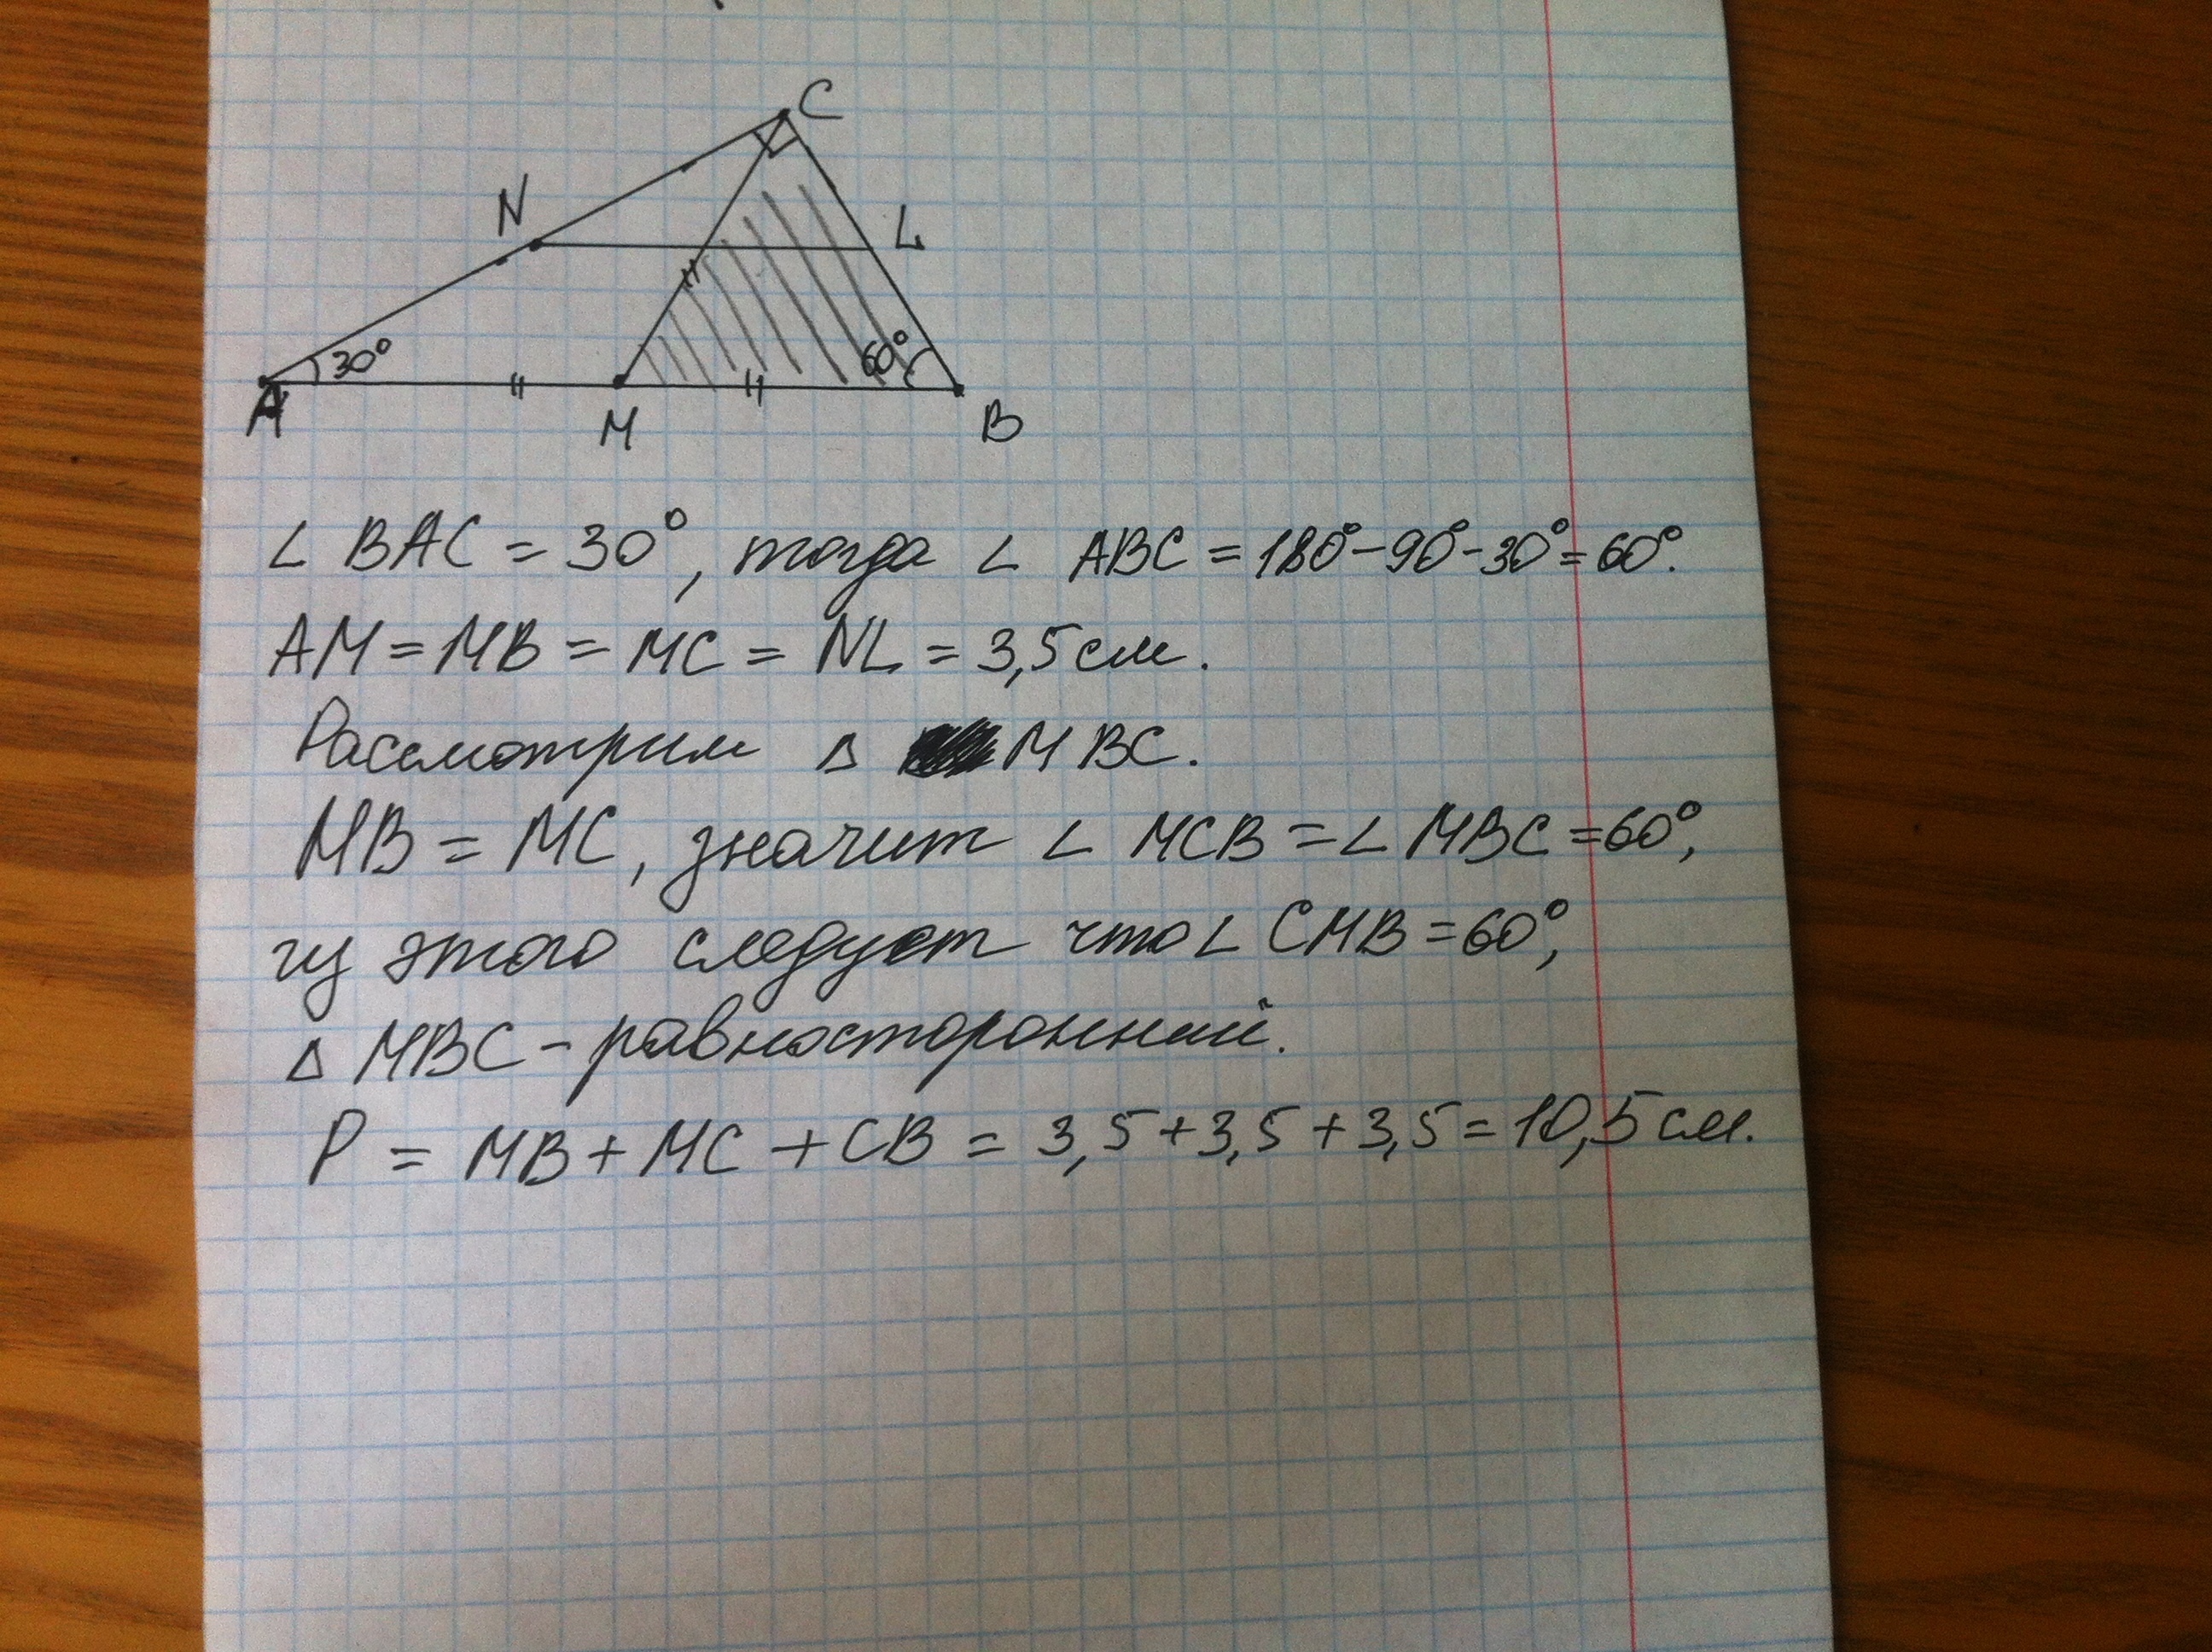 C
N
L
30°
60°
A
M
B
∠ BAC = 30°, тогда ∠ ABC = 180°-90°-30°=60°.
AM = MB = MC = NL = 3,5 см.
Рассмотрим Δ MBC.
MB = MC, значит ∠ MCB = ∠ MBC = 60°,
из этого следует что ∠ CMB = 60°,
Δ MBC - равносторонний.
P = MB + MC + CB = 3,5 + 3,5 + 3,5 = 10,5 см.